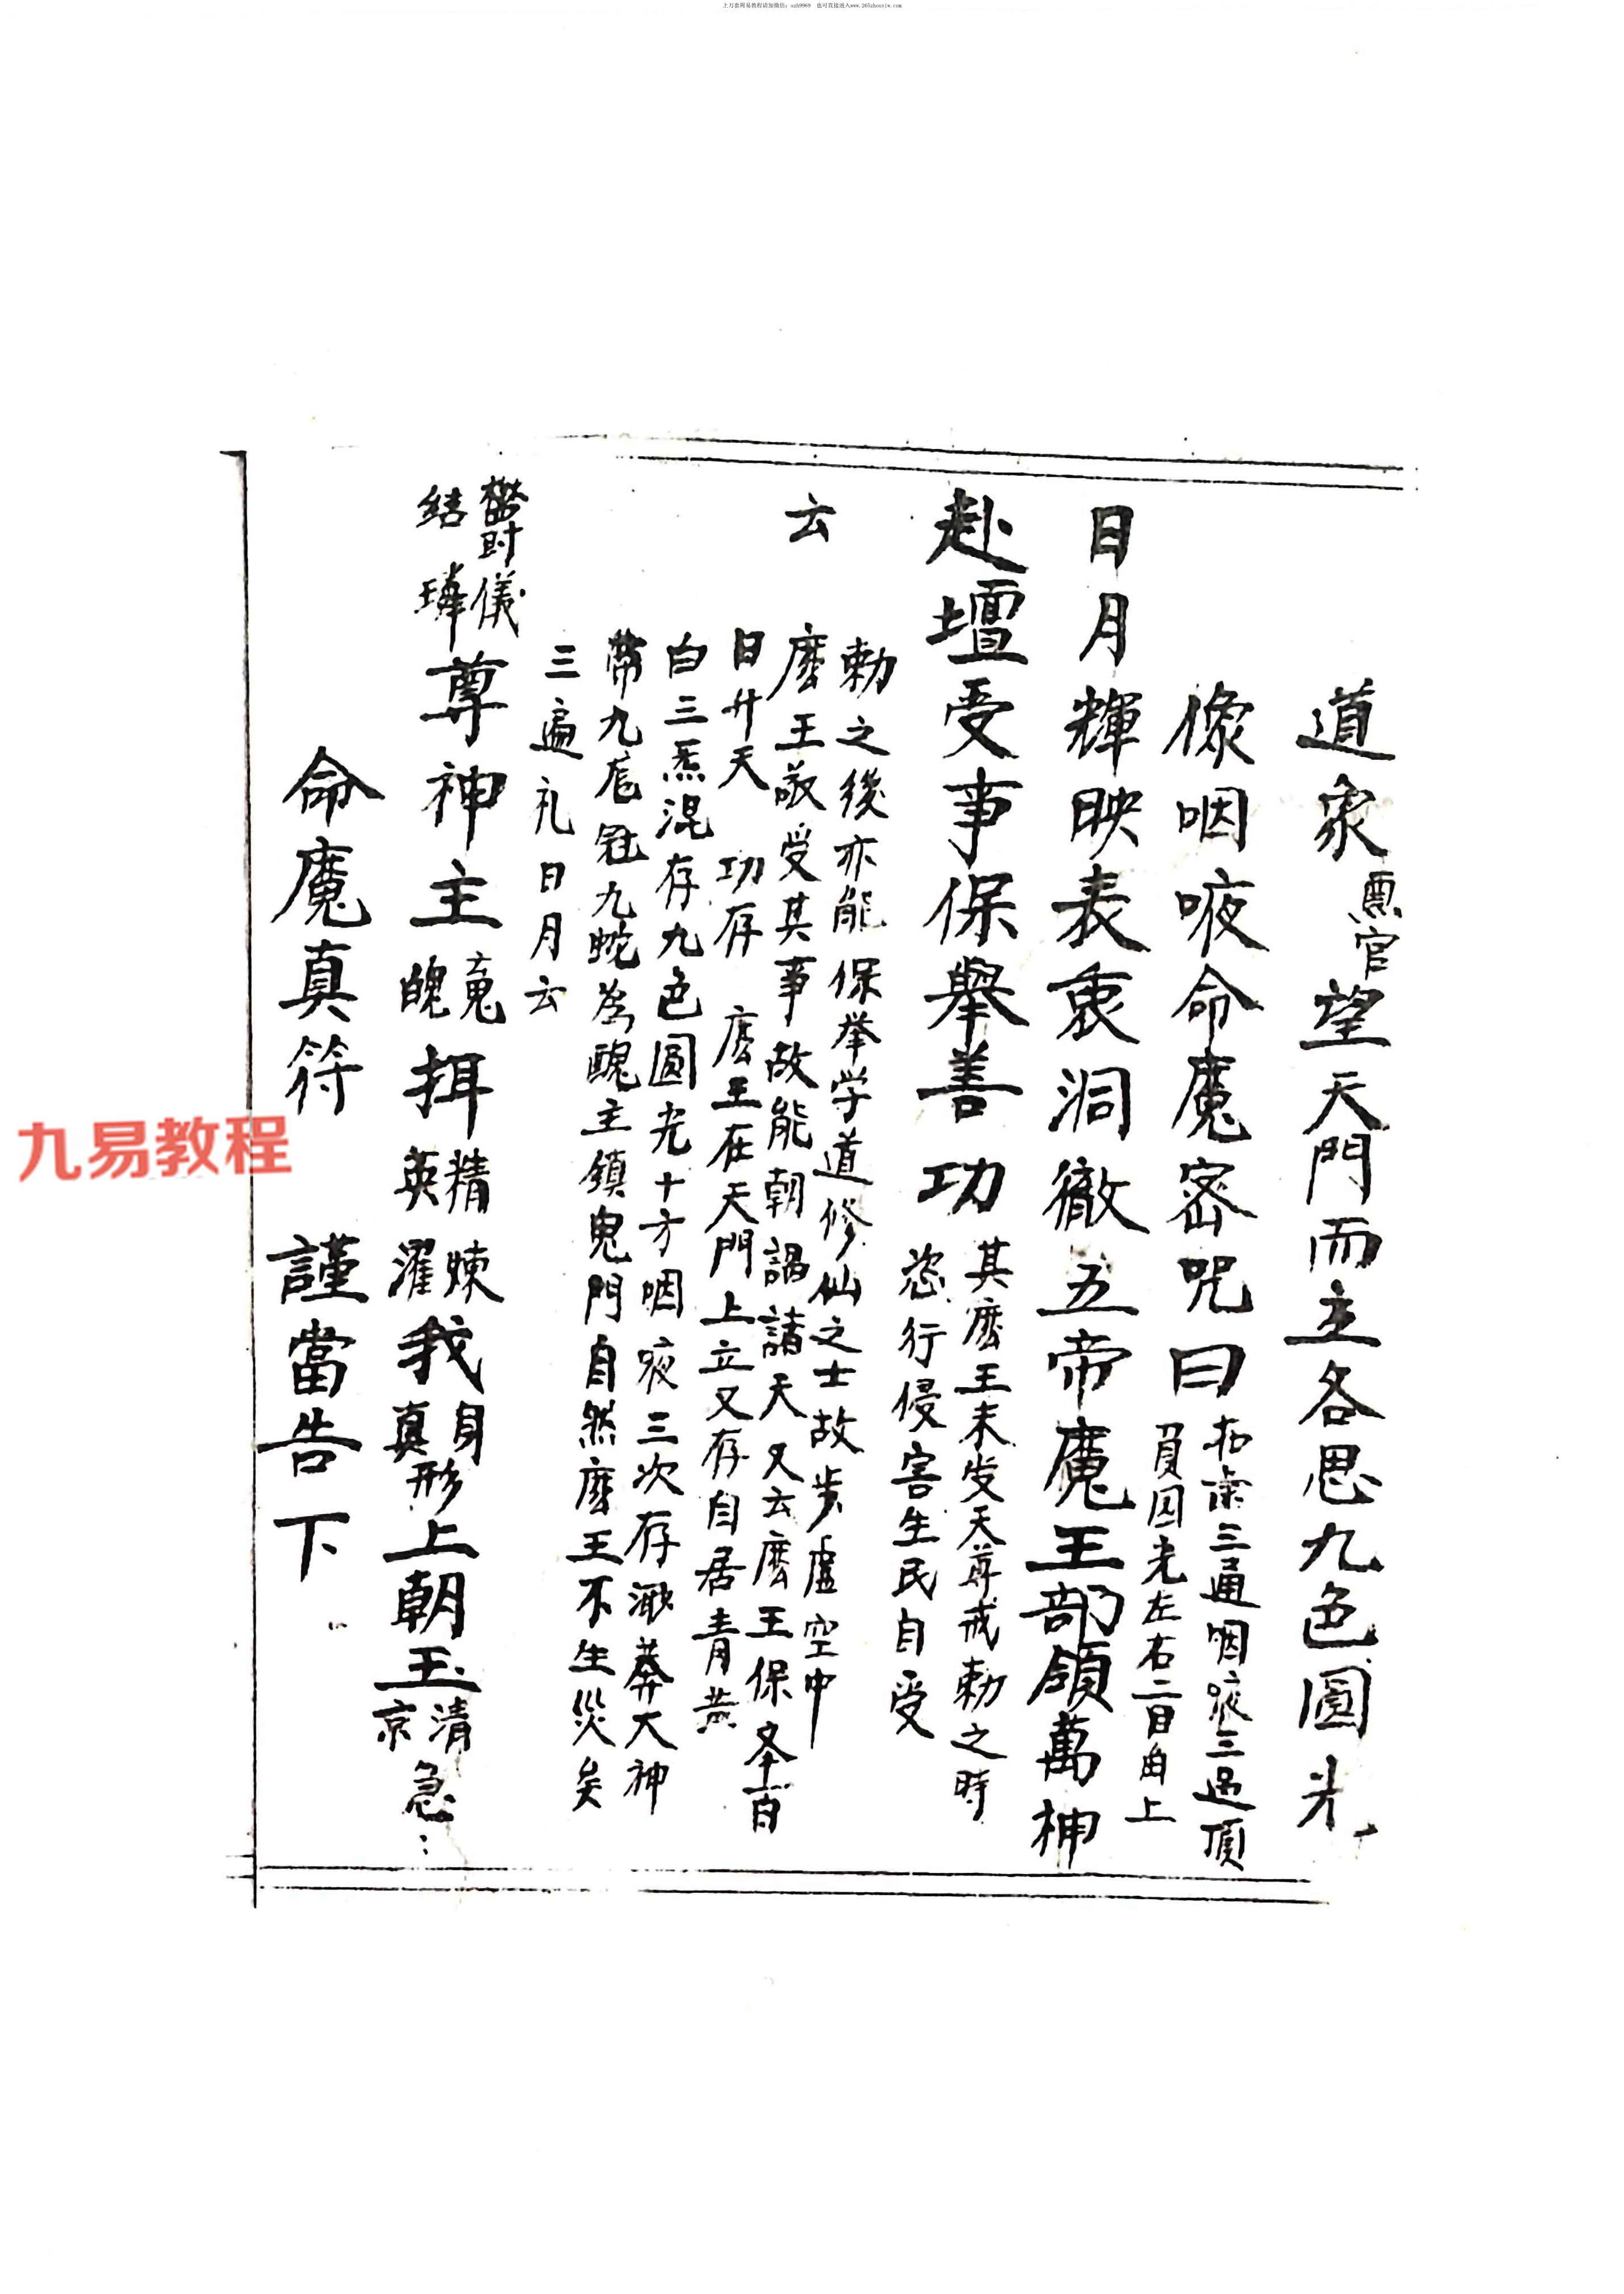 上万套周易教程请加微信：szh9969 也可直接进入www.265zhouyiw.com
道象 官望天門而立各思九色圓光
像咽唳命魔密咒曰 齒三通咽唳三過頂
負囙光左右二目由上
日月輝映表裏洞徹五帝魔王部領萬神
赴壇受事保舉善功 其麼王未发天尊戒勅之時
恣行侵害生民自受
勅之後亦能保举学道修仙之士故步虛空中
云
麼王敬受其事故能朝謁諸天又云麼王保
日升天 功存 麼王在天門上立又存自居青黄
白三炁混存九色圓光十方咽唳三次存 莽大神
帶九 冠九蛇為醜主鎮鬼門自然麼王不生災矣
三遍礼日月云
鬱儀
結璘尊神主
魄揖 精
英 煉
濯我 身
真形上朝玉 清
京急
命魔真符 謹當告下
九易教程